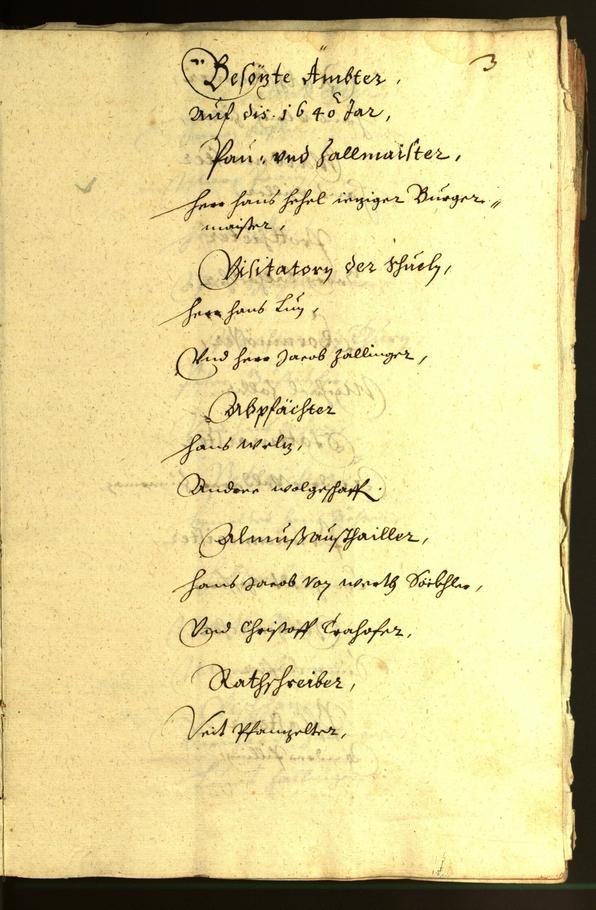 3
Besözte Ämbter,
Auf dis. 1640 Jar,
Pau: vnd Zallmaister,
Herr Hans Hehel ieziger Burger„
maister,
Visitatorn der Schueln,
Herr Hans Luz,
Vnd Herr Jacob Zallinger,
Abpfächter
Hans
Andree Wolgeschaff.
Almußaußthailler,
Hans Jacob von Werth
Vnd Christoff Trahofer,
Rathschreiber,
Veit Pfanzelter,